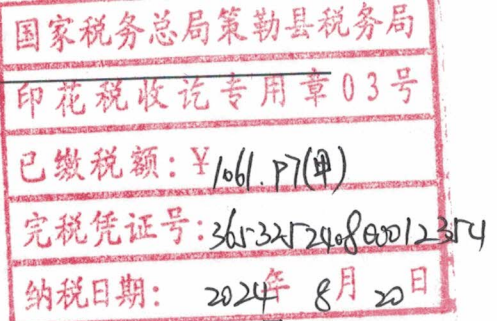 国家税务总局策勒县税务局
印花税收讫专用章03号
已缴税额：¥1061.97(甲)
完税凭证号：365325240800012354
纳税日期：2024年8月20日